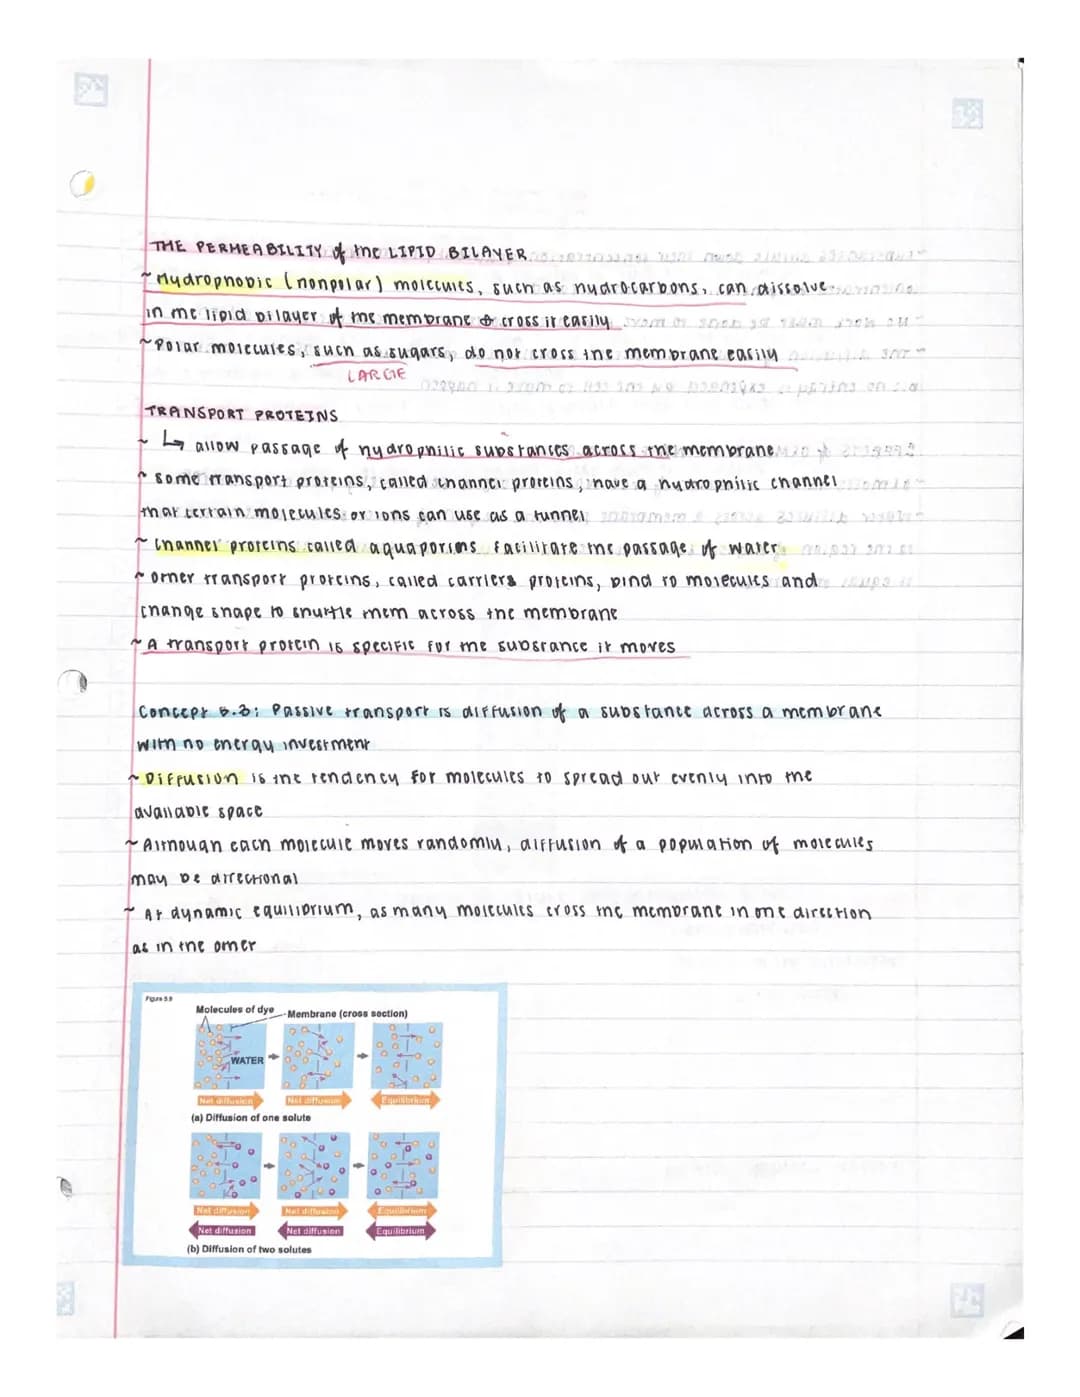 THE PERMEABILITY of the LIPID BILAYER
~ Hydrophobic (nonpolar) molecules, such as hydrocarbons, can dissolve
in the lipid bilayer of the membrane & cross it easily
~ Polar molecules, such as sugars, do not cross the membrane easily
LARGE
TRANSPORT PROTEINS
~ ↳ allow passage of hydrophilic substances across the membrane
~ some transport proteins, called channel proteins, have a hydrophilic channel
that certain molecules or ions can use as a tunnel
~ Channel proteins called aquaporins facilitate the passage of water
~ other transport proteins, called carriers proteins, bind to molecules and
change shape to shuttle them across the membrane
~ A transport protein is specific for the substance it moves
Concept 5.3: Passive transport is diffusion of a substance across a membrane
with no energy investment
~ Diffusion is the tendency for molecules to spread out evenly into the
available space
~ Although each molecule moves randomly, diffusion of a population of molecules
may be directional
~ At dynamic equilibrium, as many molecules cross the membrane in one direction
as in the other
Figure 5.9
Molecules of dye
Membrane (cross section)
WATER
Net diffusion Net diffusion Equilibrium
(a) Diffusion of one solute
Net diffusion Net diffusion Equilibrium
Net diffusion Net diffusion Equilibrium
(b) Diffusion of two solutes